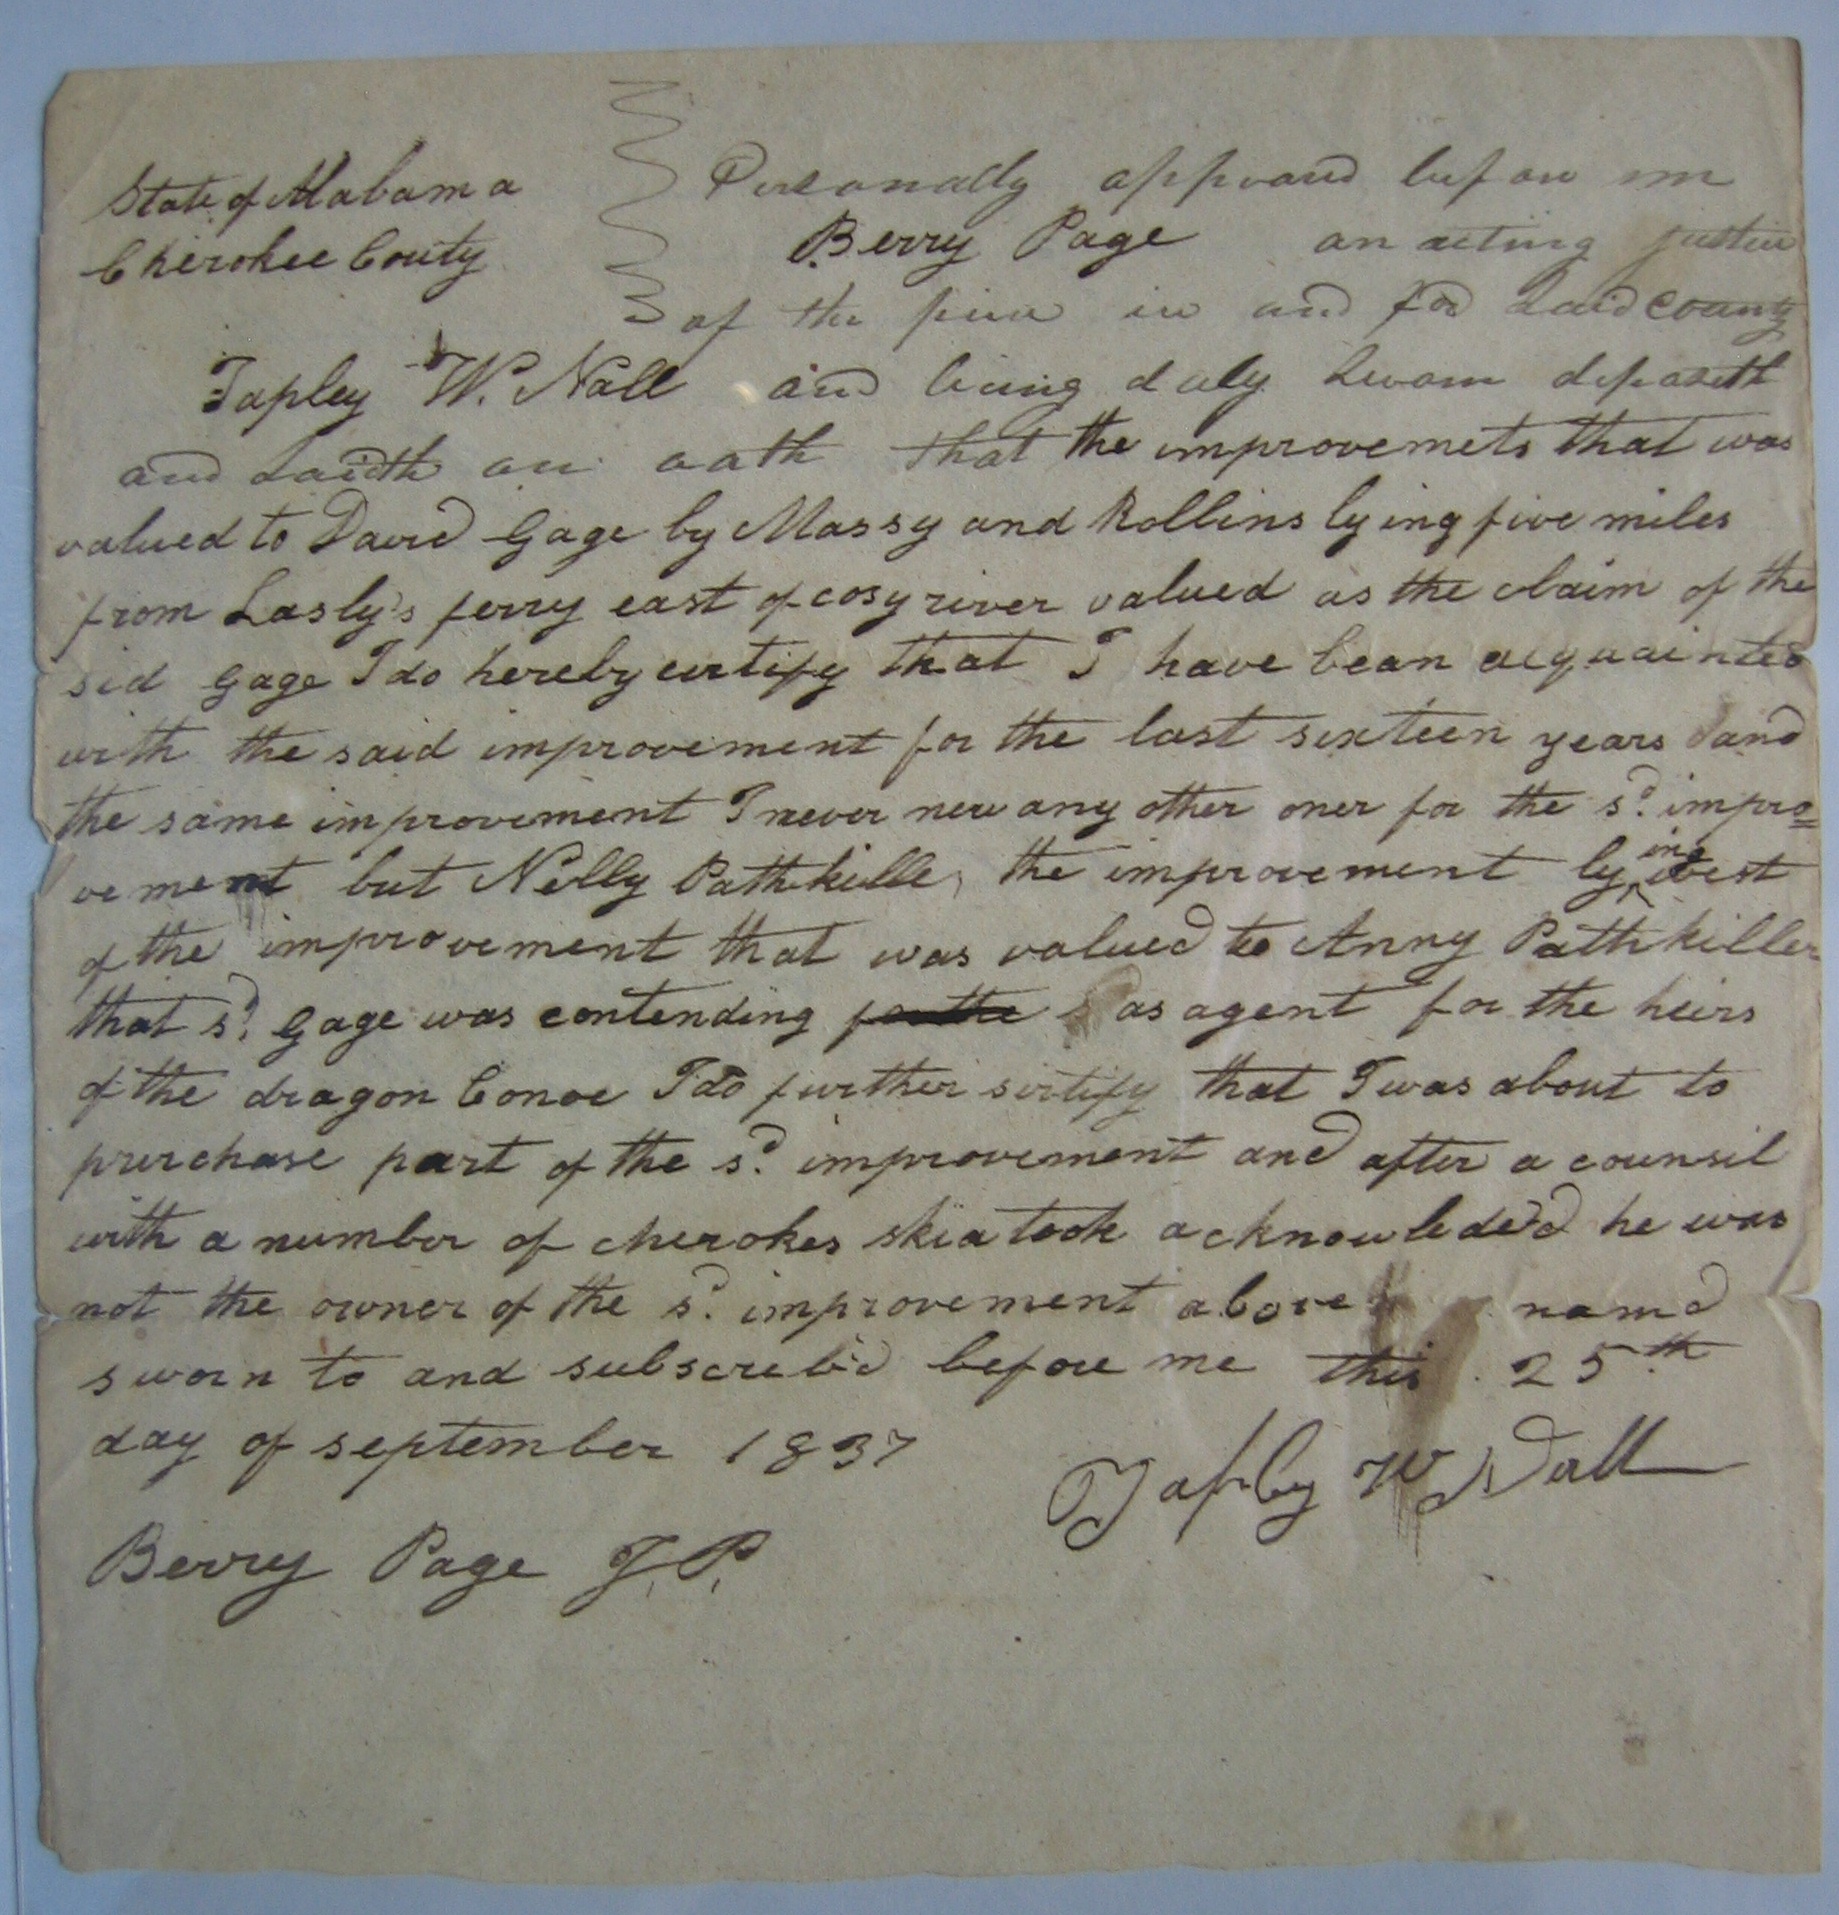 State of Alabama
Cherokee Couty
Personally appeard before me
Berry Page an acting justice
of the peace in and for said county
Tapley W. Nall and being duly sworn deposeth
and saidth on oath that the improvemets that was
valued to David Gage by Massy and Rollins lying five miles
from Lasly's ferry east of cosy river valued as the claim of the
sid Gage I do hereby certify that I have bean acquainted
with the said improvement for the last sixteen years and
the same improvement I never new any other oner for the sd. impro=
vement but Nelly Pathkille the improvement lying west
of the improvement that was valued to Anny Pathkiller
that sd. Gage was contending for the as agent for the heirs
of the dragon Conoe I do further sertify that I was about to
purchase part of the sd. improvement and after a counsil
with a number of cherokes skiatook acknowlede'd he was
not the owner of the sd. improvement above namd
sworn to and subscreb'd before me this 25th
day of september 1837
Tapley W Nall
Berry Page J.P.